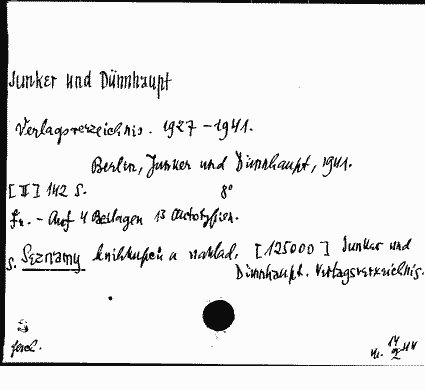 Junker und Dünnhaupt
Verlagsverzeichnis. 1927-1941.
Berlin, Junker und Dünnhaupt, 1941.
[II] 142 S. 8°
Fr. - Auf 4 Beilagen 13 Autotypien.
S. Seznamy knihkupců a naklad. [125000] Junker und
Dünnhaupt. Verlagsverzeichnis.